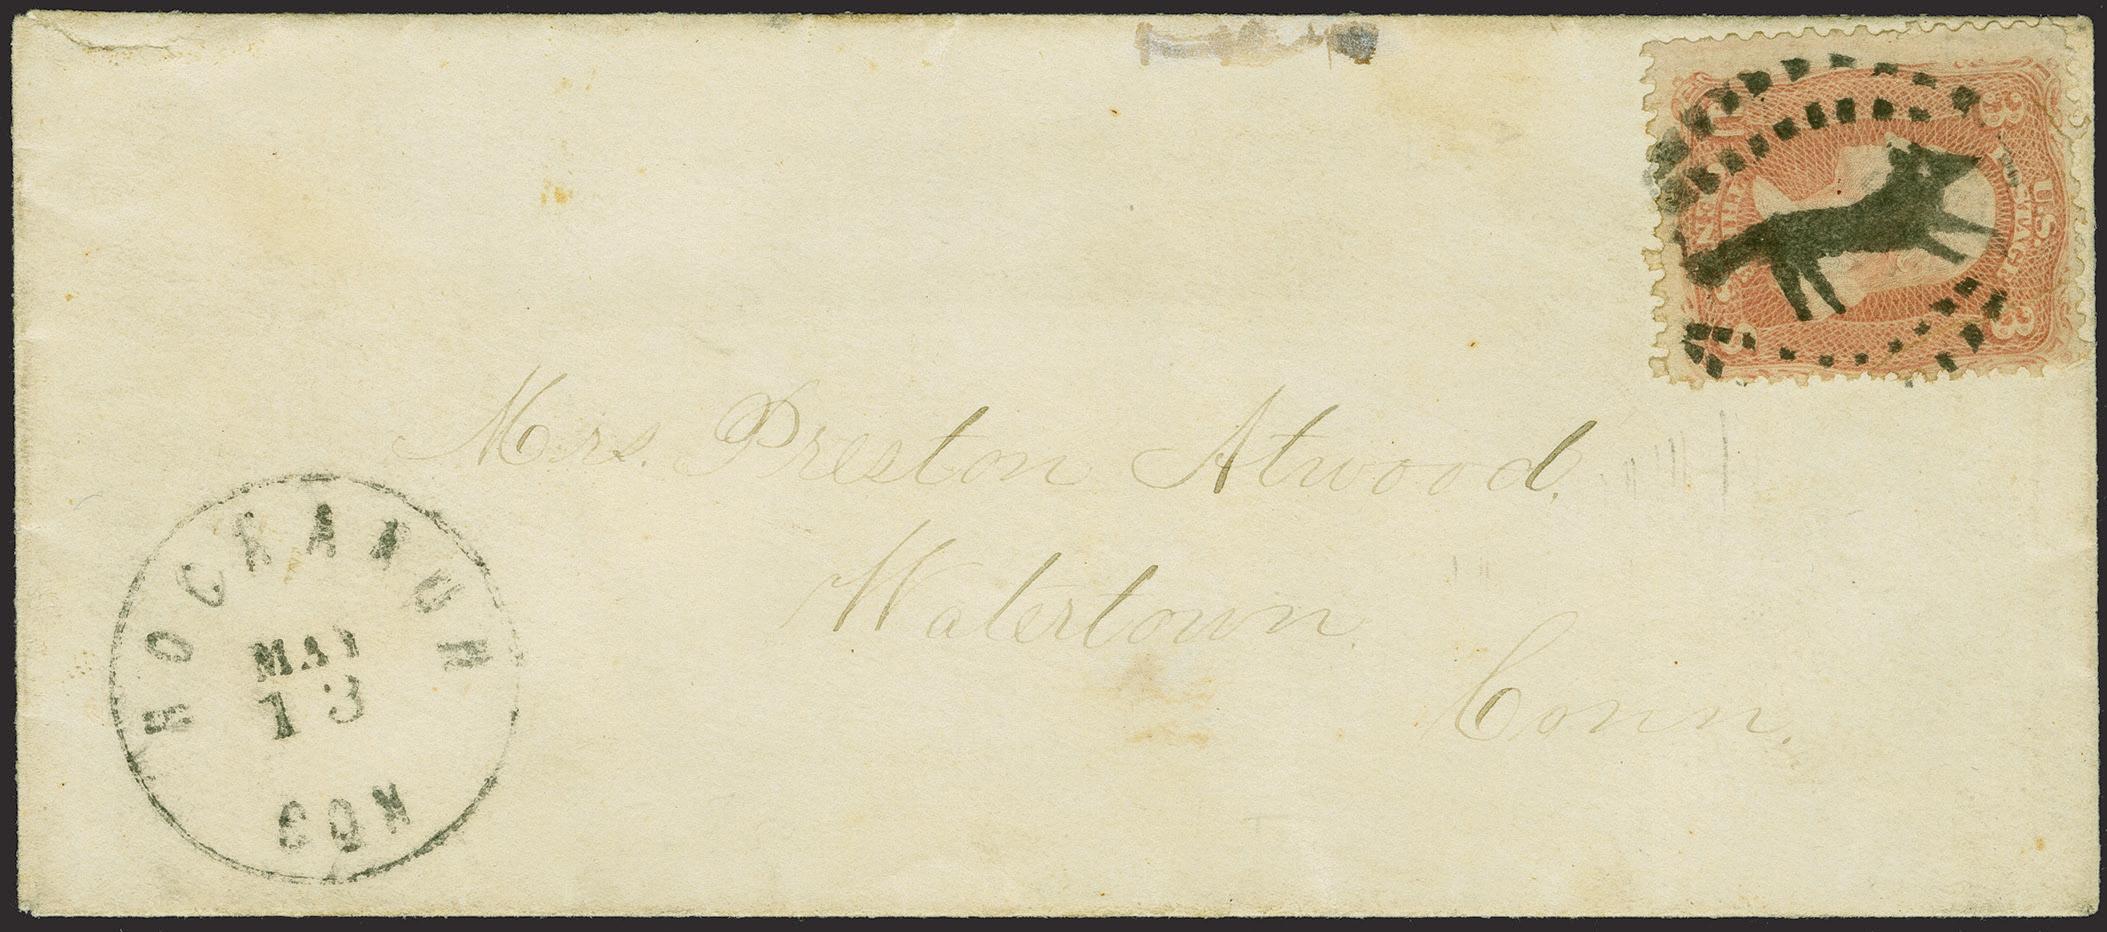 3 U.S. POSTAGE 3
Mrs. Preston Atwood.
Watertown.
Conn.
HOCKANUM
MAY
13
CON